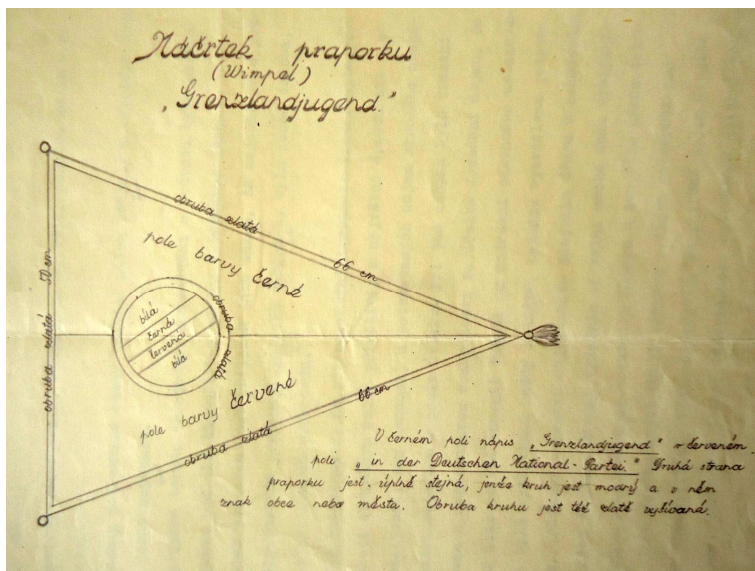 Náčrtek praporku
(Wimpel)
„Grenzlandjugend."
obruba zlatá
66 cm
pole barvy černé
obruba zlatá 50 cm
bílá
černá
červená
bílá
obruba zlatá
pole barvy červené
obruba zlatá
66 cm
V černém poli nápis „Grenzlandjugend" v červeném
poli „in der Deutschen National-Partei." Druhá strana
praporku jest úplně stejná, jenže kruh jest modrý a v něm
znak obce nebo města. Obruba kruhu jest též zlatě vyšívaná.